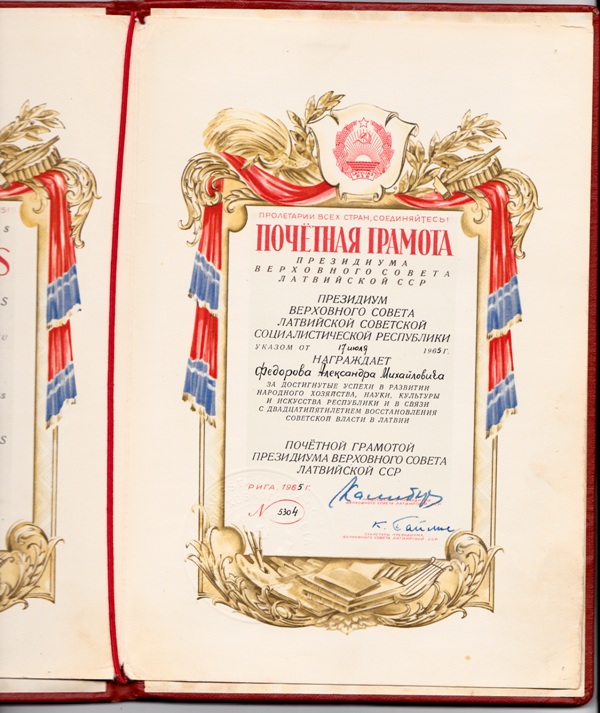 ПРОЛЕТАРИИ ВСЕХ СТРАН, СОЕДИНЯЙТЕСЬ!
ПОЧЁТНАЯ ГРАМОТА
ПРЕЗИДИУМА
ВЕРХОВНОГО СОВЕТА
ЛАТВИЙСКОЙ ССР
ПРЕЗИДИУМ
ВЕРХОВНОГО СОВЕТА
ЛАТВИЙСКОЙ СОВЕТСКОЙ
СОЦИАЛИСТИЧЕСКОЙ РЕСПУБЛИКИ
УКАЗОМ ОТ 17 июля 1965 г.
НАГРАЖДАЕТ
Федорова Александра Михайловича
ЗА ДОСТИГНУТЫЕ УСПЕХИ В РАЗВИТИИ
НАРОДНОГО ХОЗЯЙСТВА, НАУКИ, КУЛЬТУРЫ
И ИСКУССТВА РЕСПУБЛИКИ И В СВЯЗИ
С ДВАДЦАТИПЯТИЛЕТИЕМ ВОССТАНОВЛЕНИЯ
СОВЕТСКОЙ ВЛАСТИ В ЛАТВИИ
ПОЧЁТНОЙ ГРАМОТОЙ
ПРЕЗИДИУМА ВЕРХОВНОГО СОВЕТА
ЛАТВИЙСКОЙ ССР
РИГА, 1965 г.
ВЕРХОВНОГО СОВЕТА ЛАТВИЙСКОЙ ССР
№ 5304
К. Гайлис
СЕКРЕТАРЬ ПРЕЗИДИУМА
ВЕРХОВНОГО СОВЕТА ЛАТВИЙСКОЙ ССР